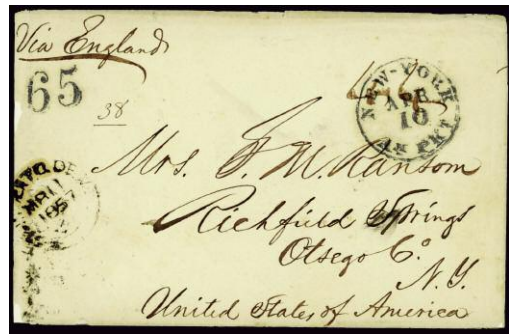 Via England
65
38
NEW-YORK
APR
10
PKT
1857
Mrs. F. M. Ransom
Richfield Springs
Otsego Co.
N.Y.
United States of America